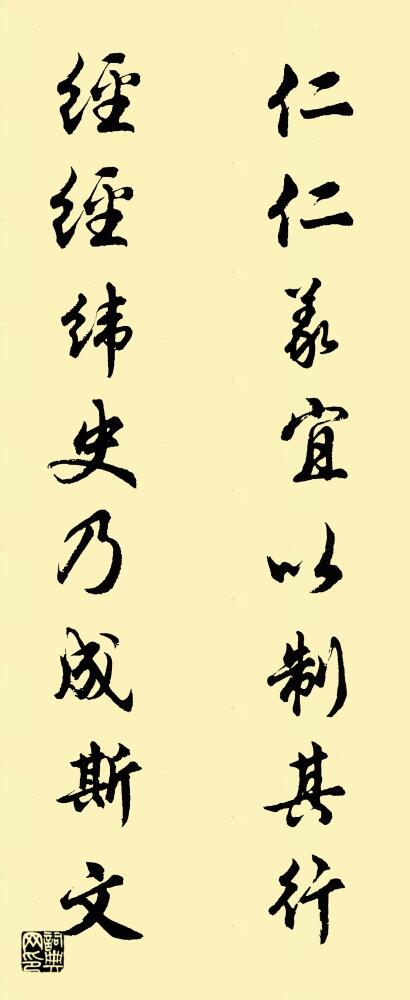 仁仁義宜以制其行
經經緯史乃成斯文
詞典网印